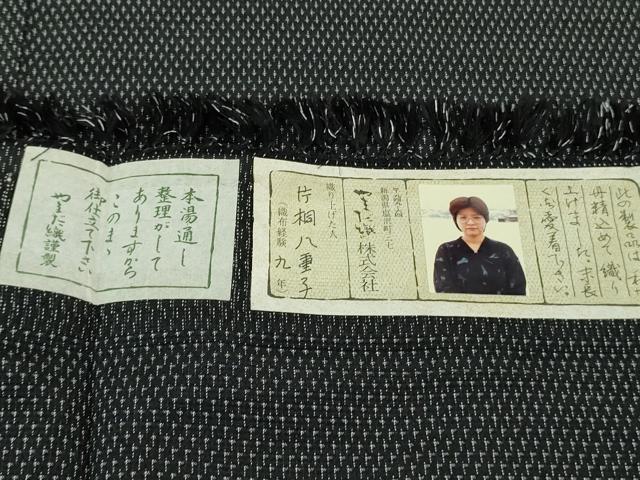 此の製品は
丹精込め、織り
上げました。末長
くご愛着下さい。
新潟県塩沢町
やまだ織株式会社
織り上げた人
片桐八重子
(織布経験 九 年)
本湯通し
整理がして
ありますから
このまゝ
御仕立下さい
やまだ織謹製